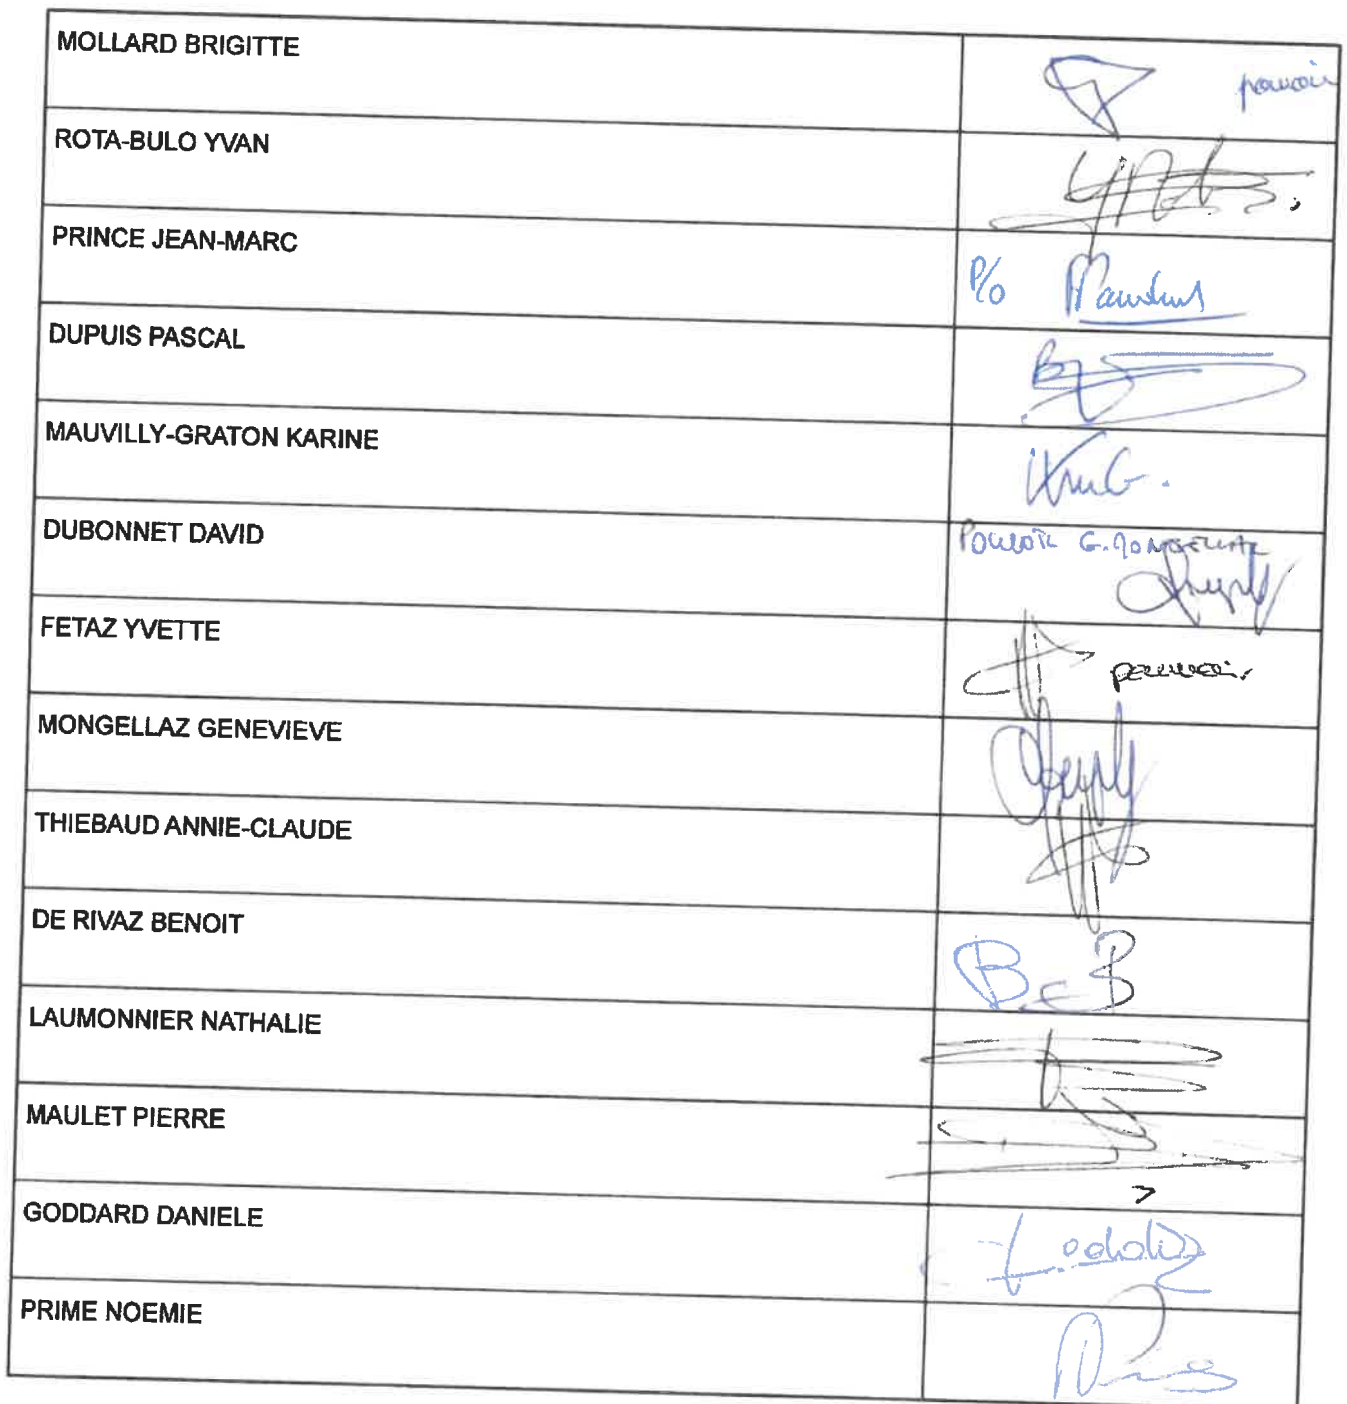 MOLLARD BRIGITTE
pouvoir
ROTA-BULO YVAN
PRINCE JEAN-MARC
P/o
DUPUIS PASCAL
MAUVILLY-GRATON KARINE
KMG.
DUBONNET DAVID
POUVOIR G. MONGELLAZ
FETAZ YVETTE
pouvoir
MONGELLAZ GENEVIEVE
THIEBAUD ANNIE-CLAUDE
DE RIVAZ BENOIT
LAUMONNIER NATHALIE
MAULET PIERRE
GODDARD DANIELE
PRIME NOEMIE